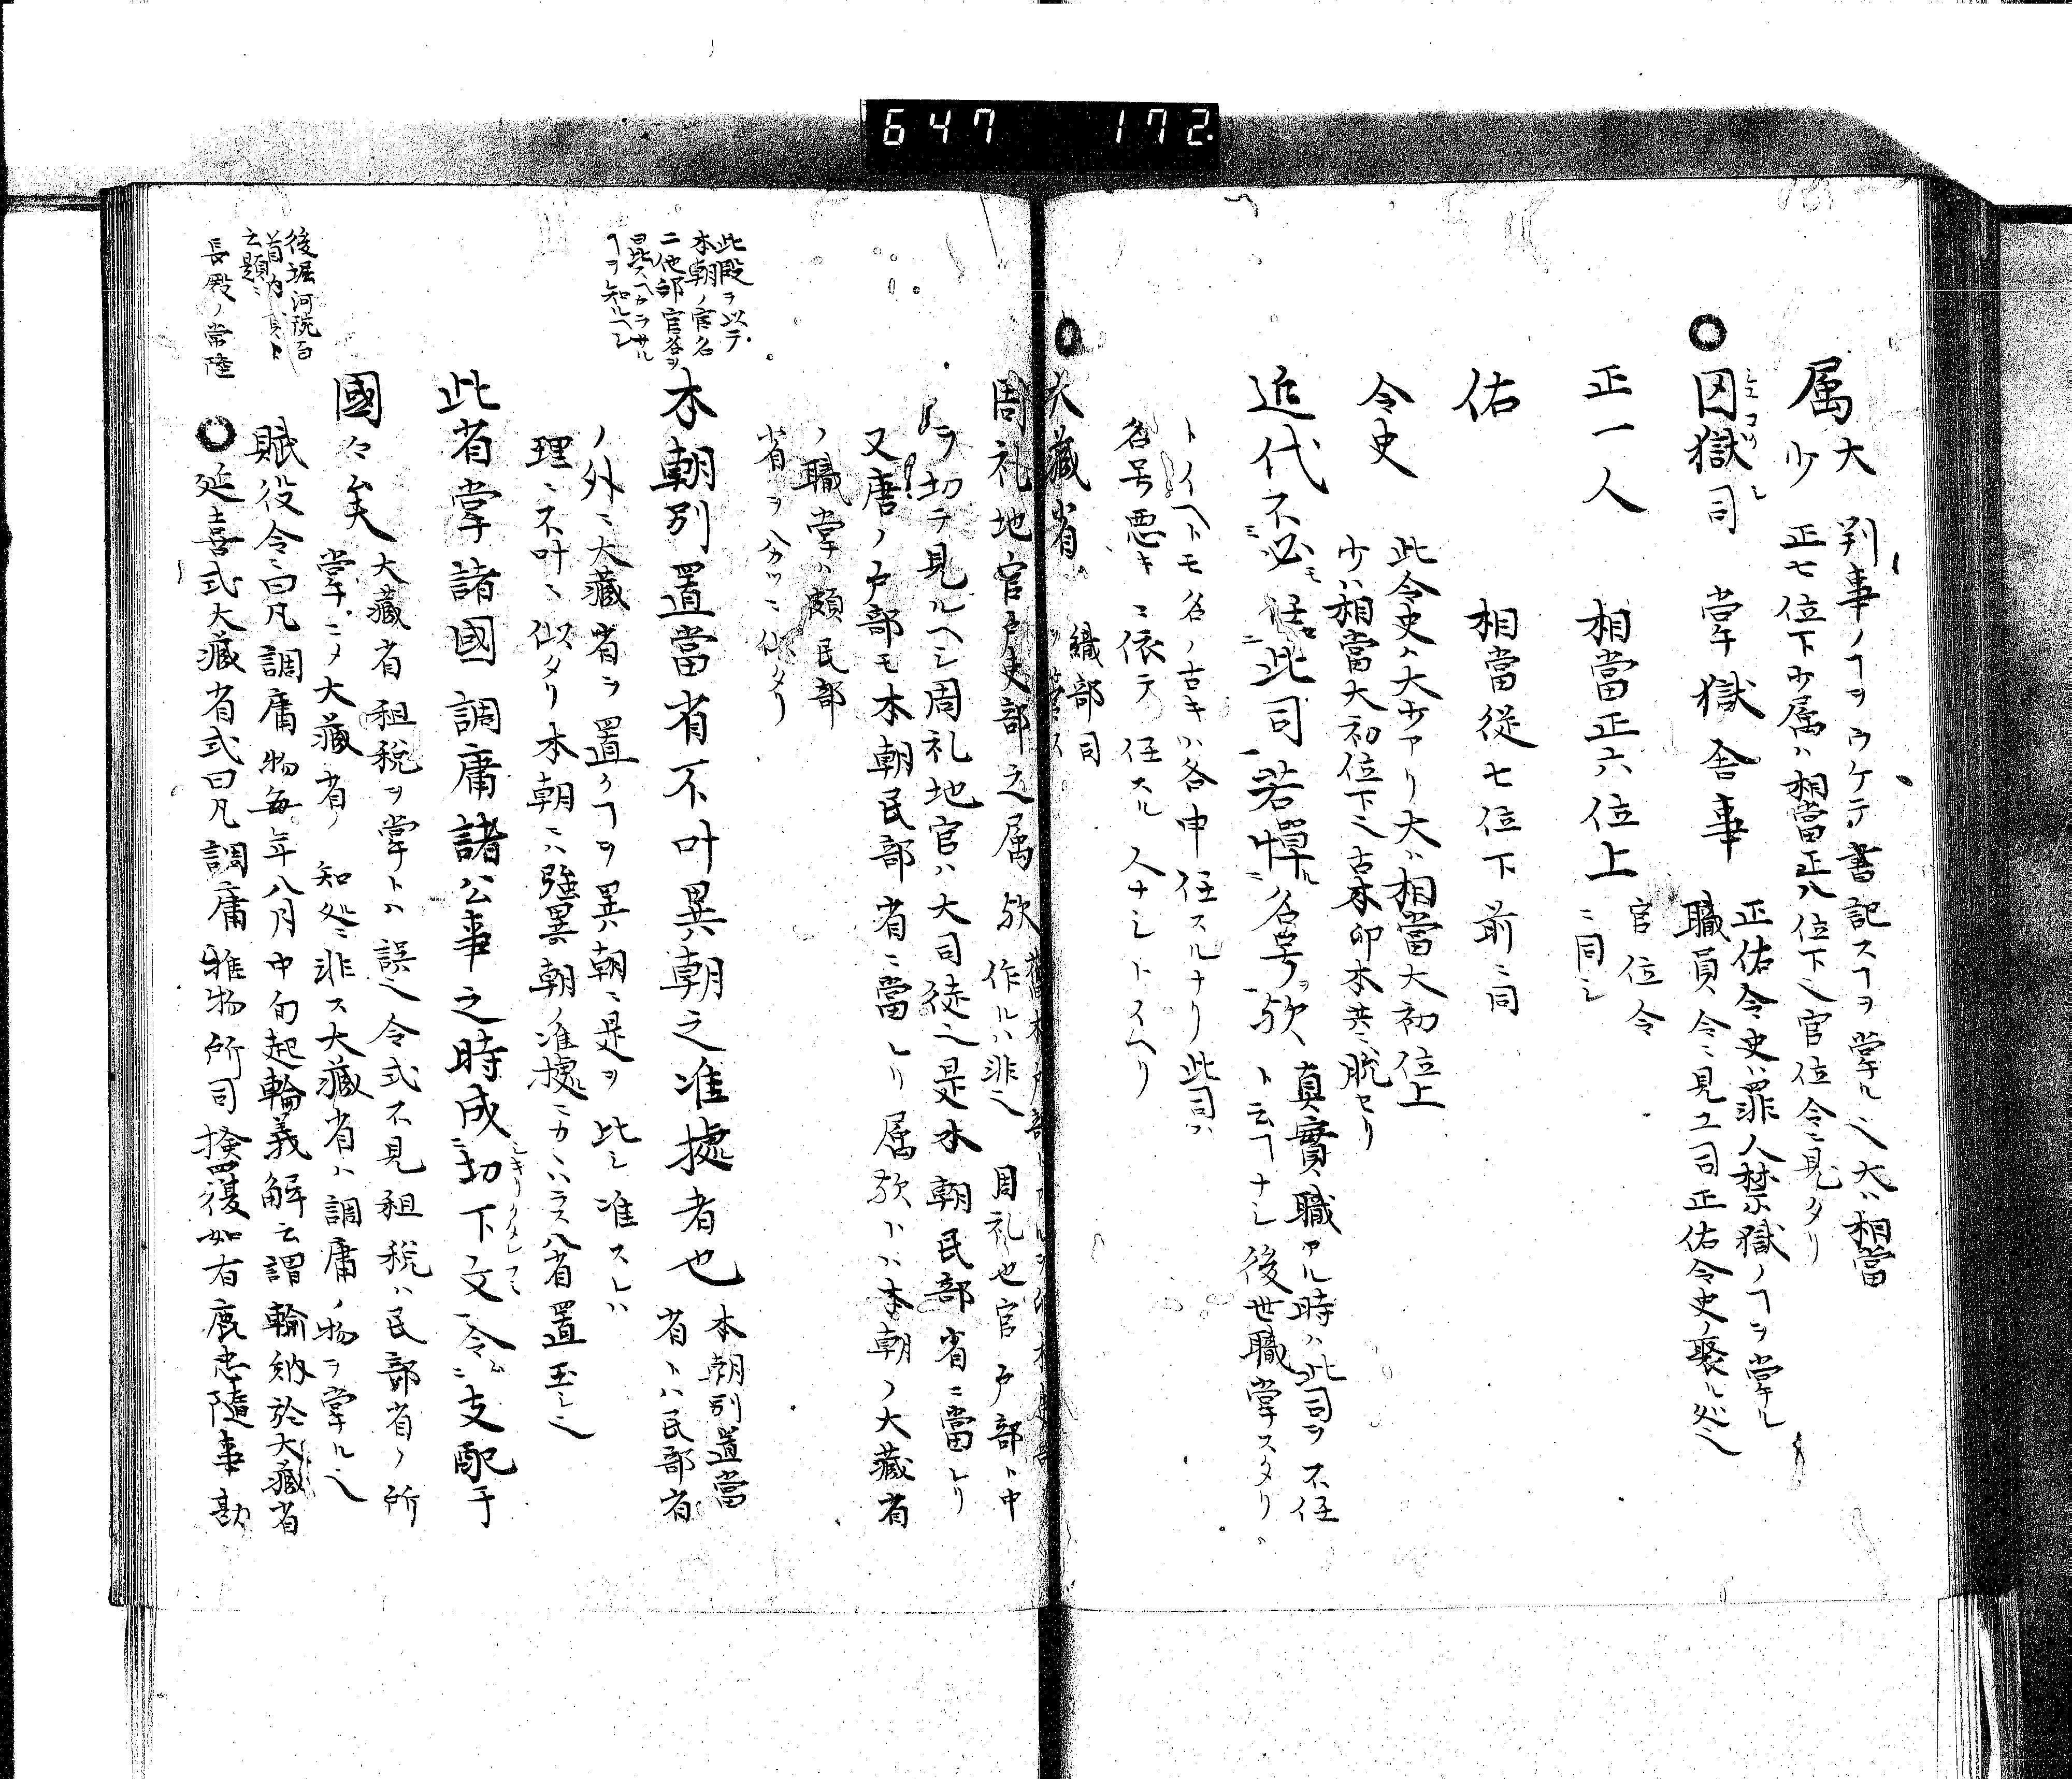 647 172
属 大 少
判事ノヿヲウケテ書記スヿヲ掌ル也大ハ相當
正七位下少属ハ相當正八位下也官位令ニ見タリ
囚獄司 掌獄舎事
正佑令史ハ罪人禁獄ノヿヲ掌ル
職員令ニ見ユ司正佑令史ノ聚ル処也
正一人 相當正六位上
官位令
ニ同シ
佑 相當従七位下 前ニ同
令史
此令史ハ大少アリ大ハ相當大初位上
少ハ相當大初位下也古本印本共ニ脱セリ
近代不必任此司若憚名号歟
真實ノ職アル時ハ此司ヲ不任
ト云ヿナシ後世職掌スタリ
トイヘトモ名ノ古キハ各申任スルナリ此司ハ
名号悪キニ依テ任スル人ナシトイヘリ
大藏省
織部司
周礼地官戸吏部之属欤
作ルハ非也 周礼也官戸部ト中
ヲ切テ見ルヘシ周礼地官ハ大司徒也是本朝民部省ニ當レリ
又唐ノ戸部モ本朝民部省ニ當レリ属欤トハ本朝ノ大藏省
ノ職掌ハ頗民部
省ヲ分ツニ似タリ
此殿ヲ以テ
本朝ノ官名
ニ他邦官名ヲ
ヿヲ知ルヘシ
本朝別置當省不叶異朝之准據者也
本朝別置當
省トハ民部省
ノ外ニ大藏省ヲ置クヿヲ異朝ニ是ヲ比シ准スレハ
理ニ不叶ニ似タリ本朝ニハ強異朝ノ准據ニカヽハラス八省置玉シ也
此省掌諸國調庸諸公事之時成切下文令支配于
國々矣
大藏省租税ヲ掌トハ誤也令式不見租税ハ民部省ノ所
掌ニノ大藏省ノ知処ニ非ス大藏省ハ調庸ノ物ヲ掌ル也
賦役令ニ曰凡調庸物毎年八月中旬起輸義解云謂輸納於大藏省
後堀河院百
首内
云題ニ
長殿ノ常陸
延喜式大藏省式曰凡調庸雑物所司検覆如有麁悪隨事勘